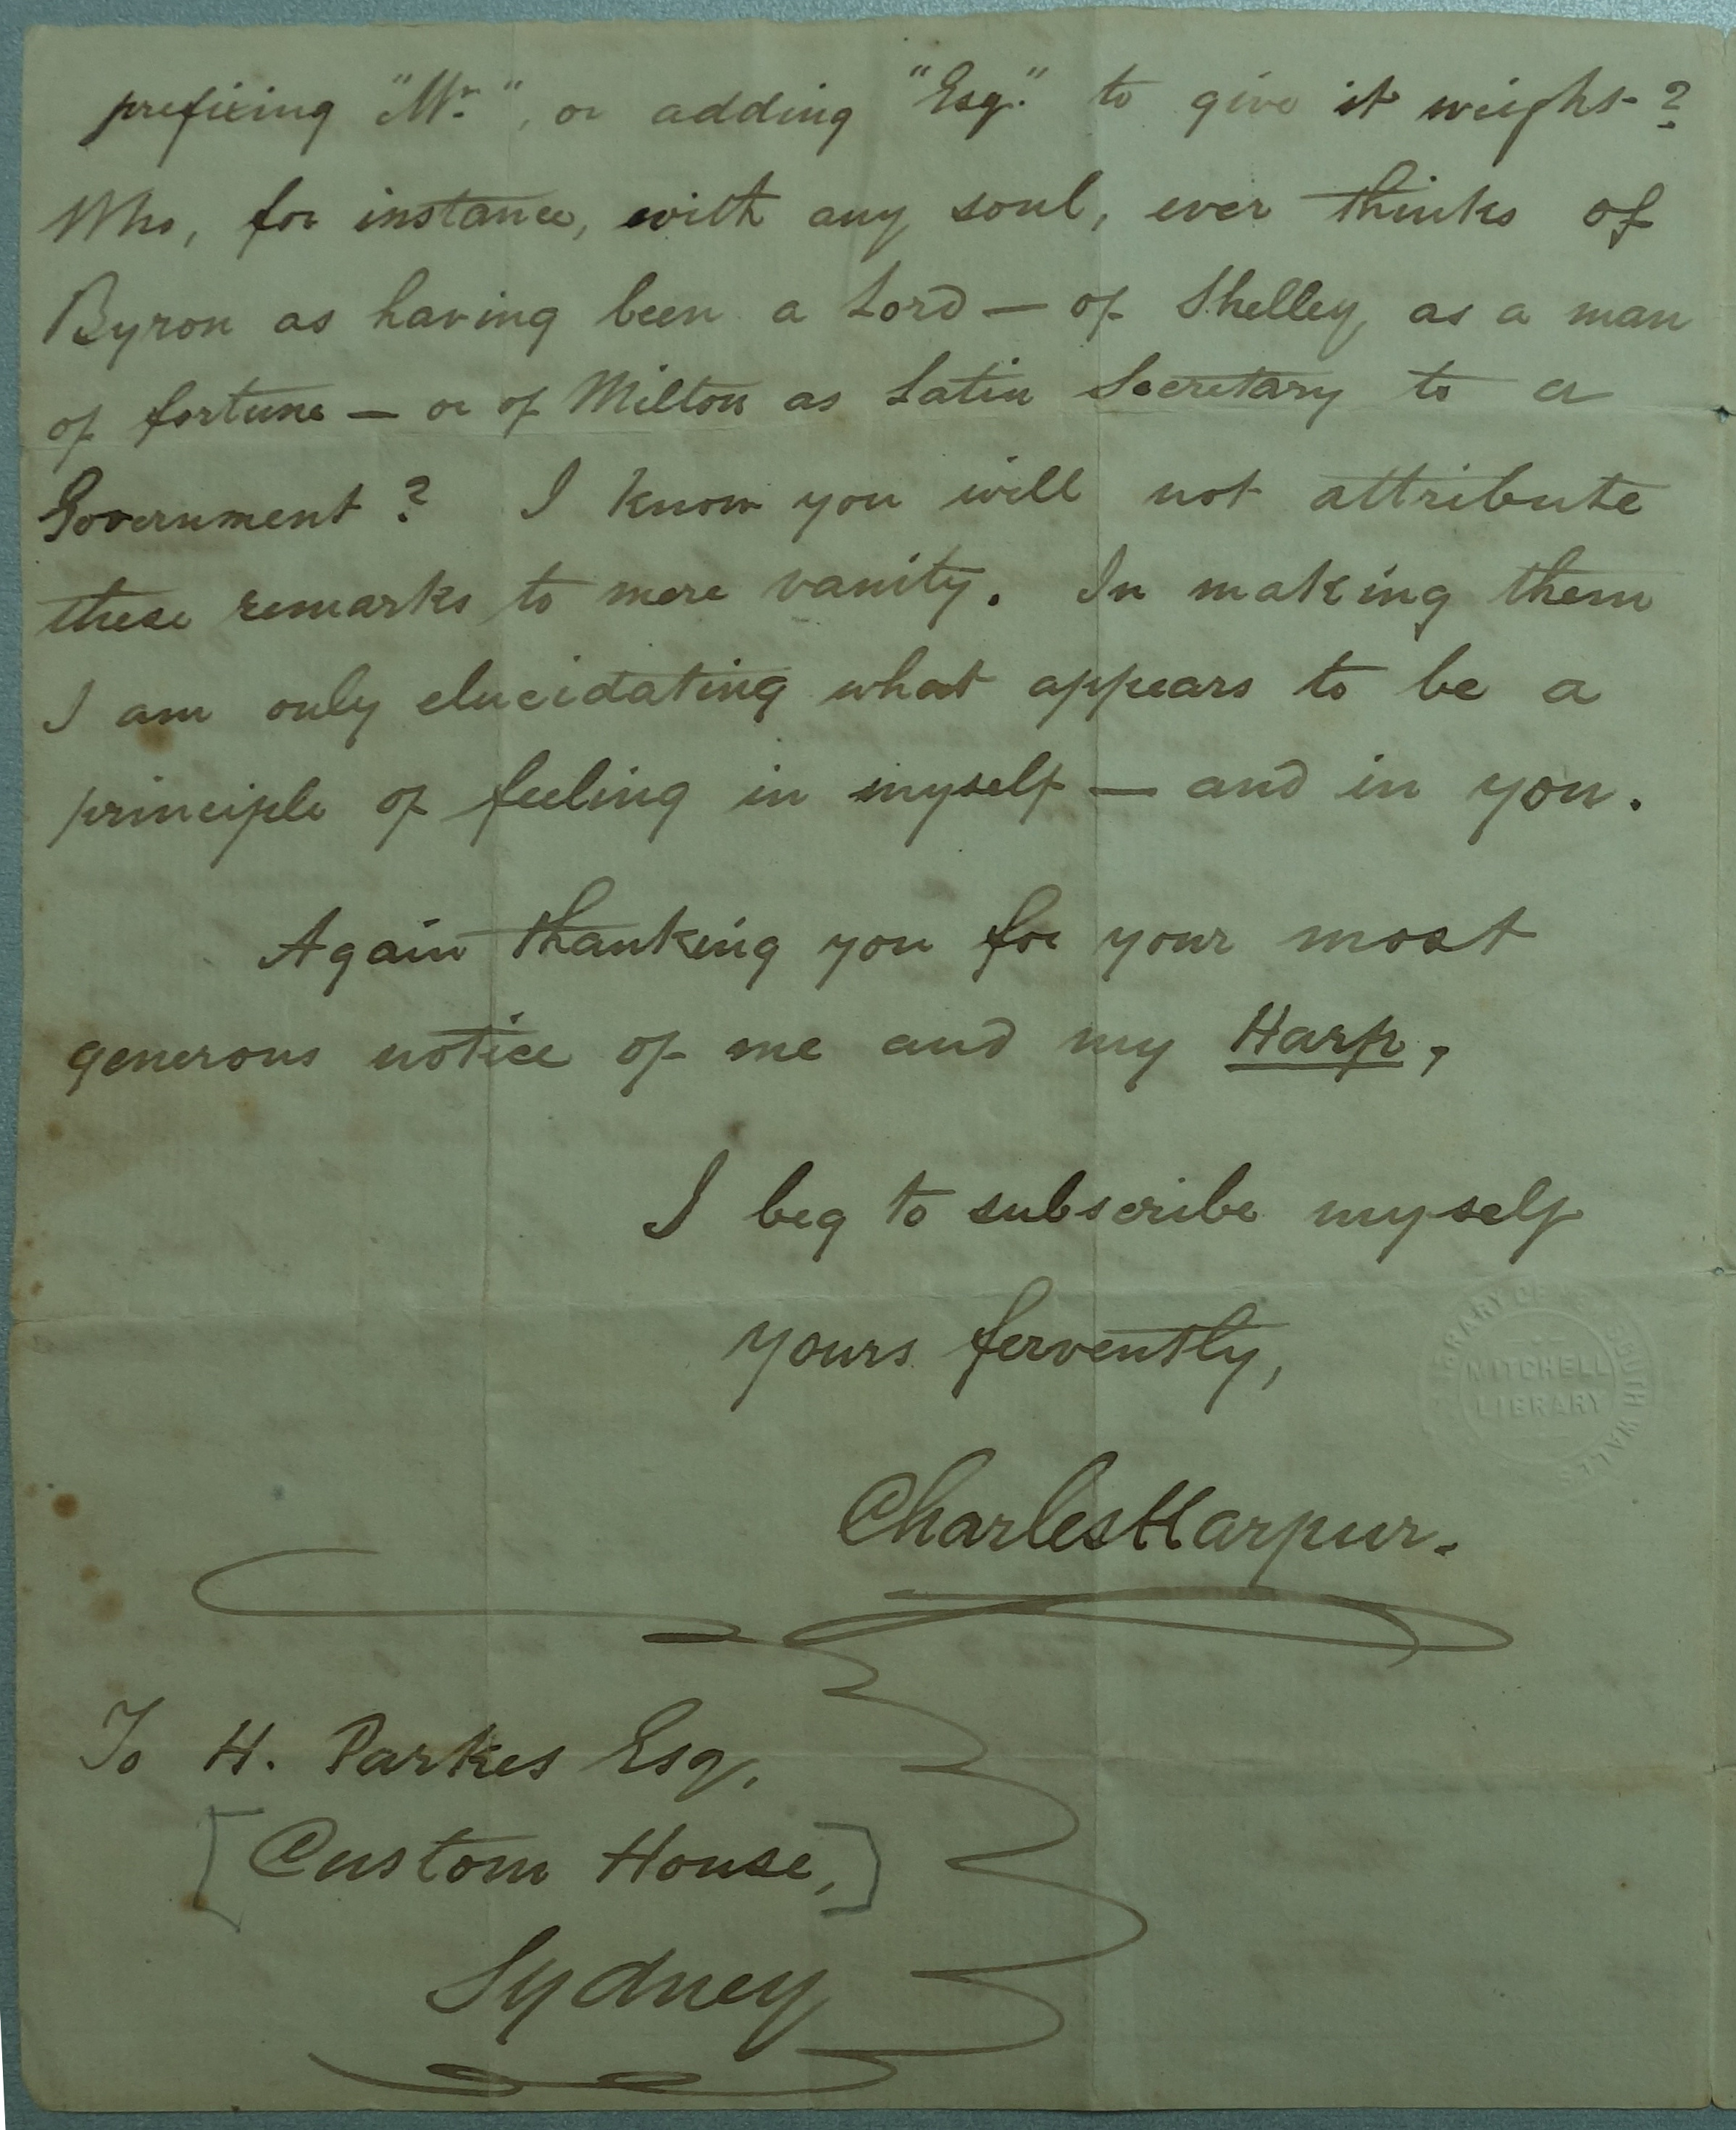 prefixing "Mr.", or adding "Esq." to give it weight?
Who, for instance, with any soul, ever thinks of
Byron as having been a Lord — of Shelley, as a man
of fortune — or of Milton as Latin Secretary to a
Government? I know you will not attribute
these remarks to mere vanity. In making them
I am only elucidating what appears to be a
principle of feeling in myself — and in you.
Again thanking you for your most
generous notice of me and my Harp,
I beg to subscribe myself
yours fervently,
LIBRARY OF NEW SOUTH WALES
MITCHELL
LIBRARY
Charles Harpur.
To H. Parkes Esq.
[Custom House,]
Sydney